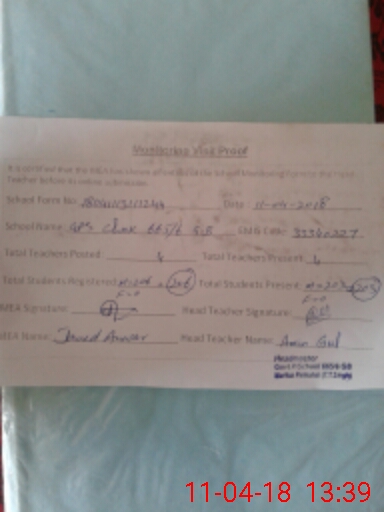 Monitoring Visit Proof
It is certified that the MEA has shown all of the School Monitoring Form to the Head
Teacher before its online submission.
School Form No: Date: 11-04-2018
School Name: GPS Chak 665/6 GB EMIS Code: 33340227
Total Teachers Posted: 4 Total Teachers Present: 4
Total Students Registered: M=206 = 206 Total Students Present: M=203 = 203
F=0 F=0
MEA Signature: Head Teacher Signature:
MEA Name: Javed Anwar Head Teacher Name: Amin Gul
Headmaster
Govt P/School 665/6 GB
11-04-18 13:39